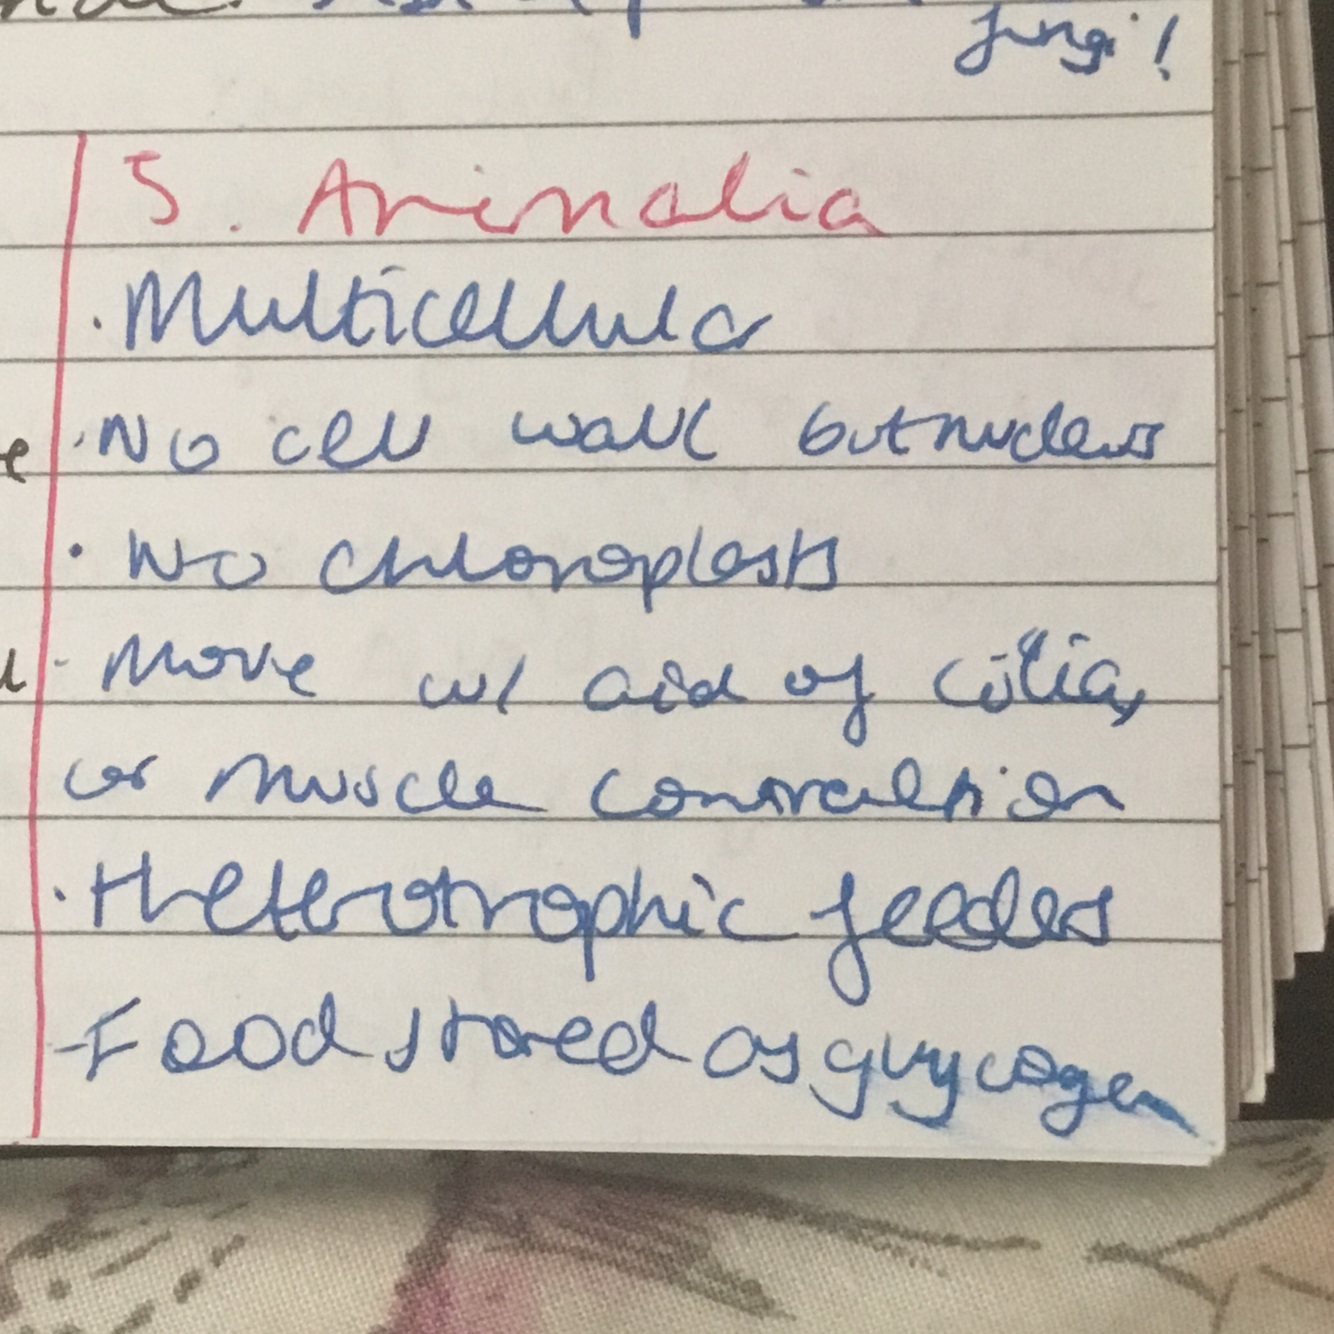 fungi!
5. Animalia
· Multicellular
e · No cell wall but nucleus
· No chloroplasts
- Move w/ aid of cilia,
or muscle contraction
· Heterotrophic feeders
- Food stored as glycogen